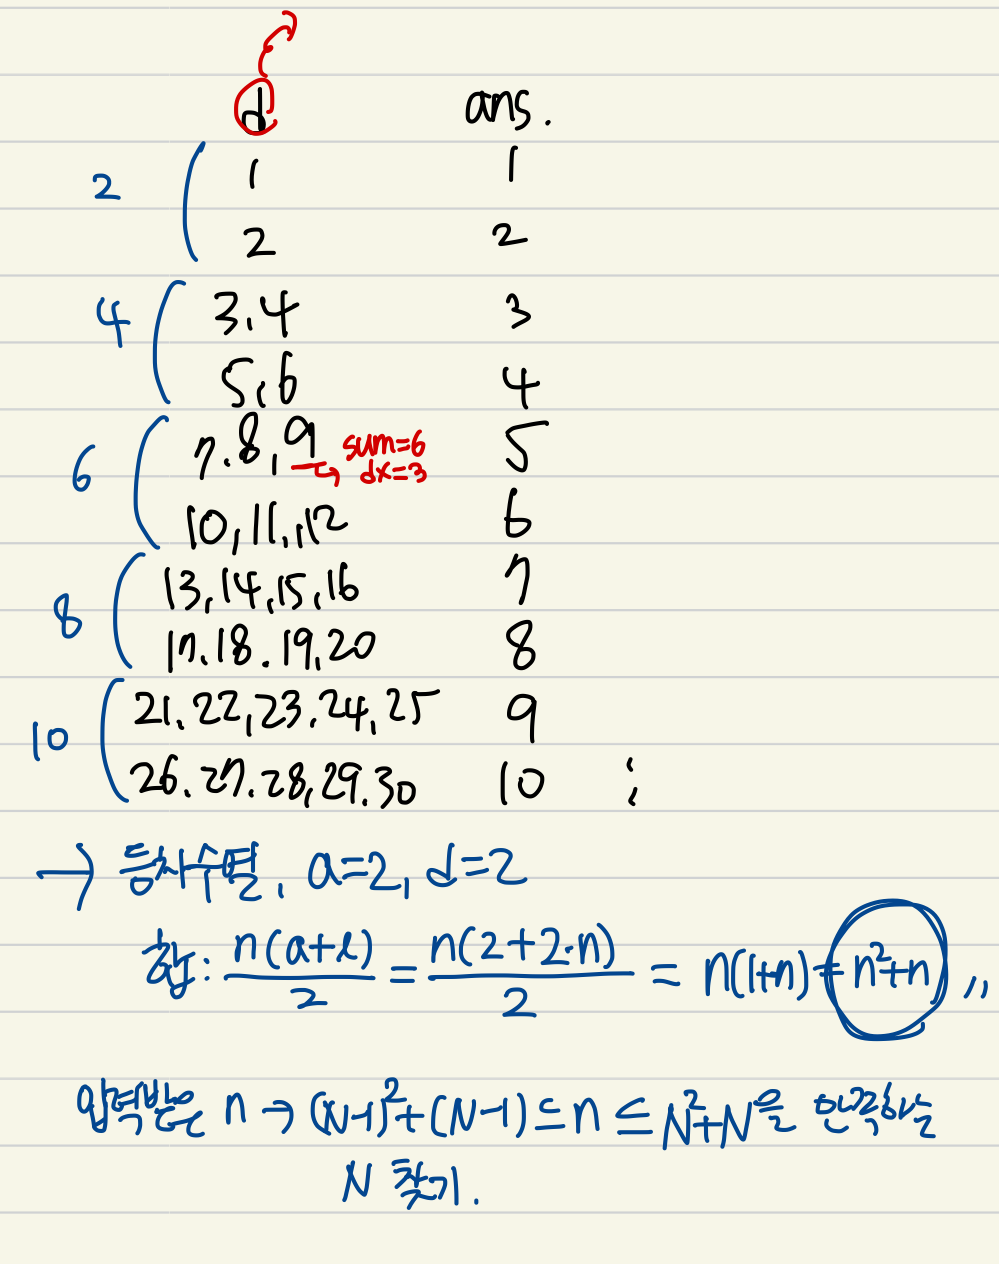 d ans.
2
1 1
2 2
4
3,4 3
5,6 4
6
7,8,9 sum=6 dx=3 5
10,11,12 6
8
13,14,15,16 7
17.18.19.20 8
10
21.22,23.24,25 9
26.27.28,29.30 10 ⋮
→ 등차수열, a=2, d=2
합: n(a+l)/2 = n(2+2·n)/2 = n(1+n) = n²+n ,,
입력받은 n → (N-1)²+(N-1) ≤ n ≤ N²+N을 만족하는
N 찾기.